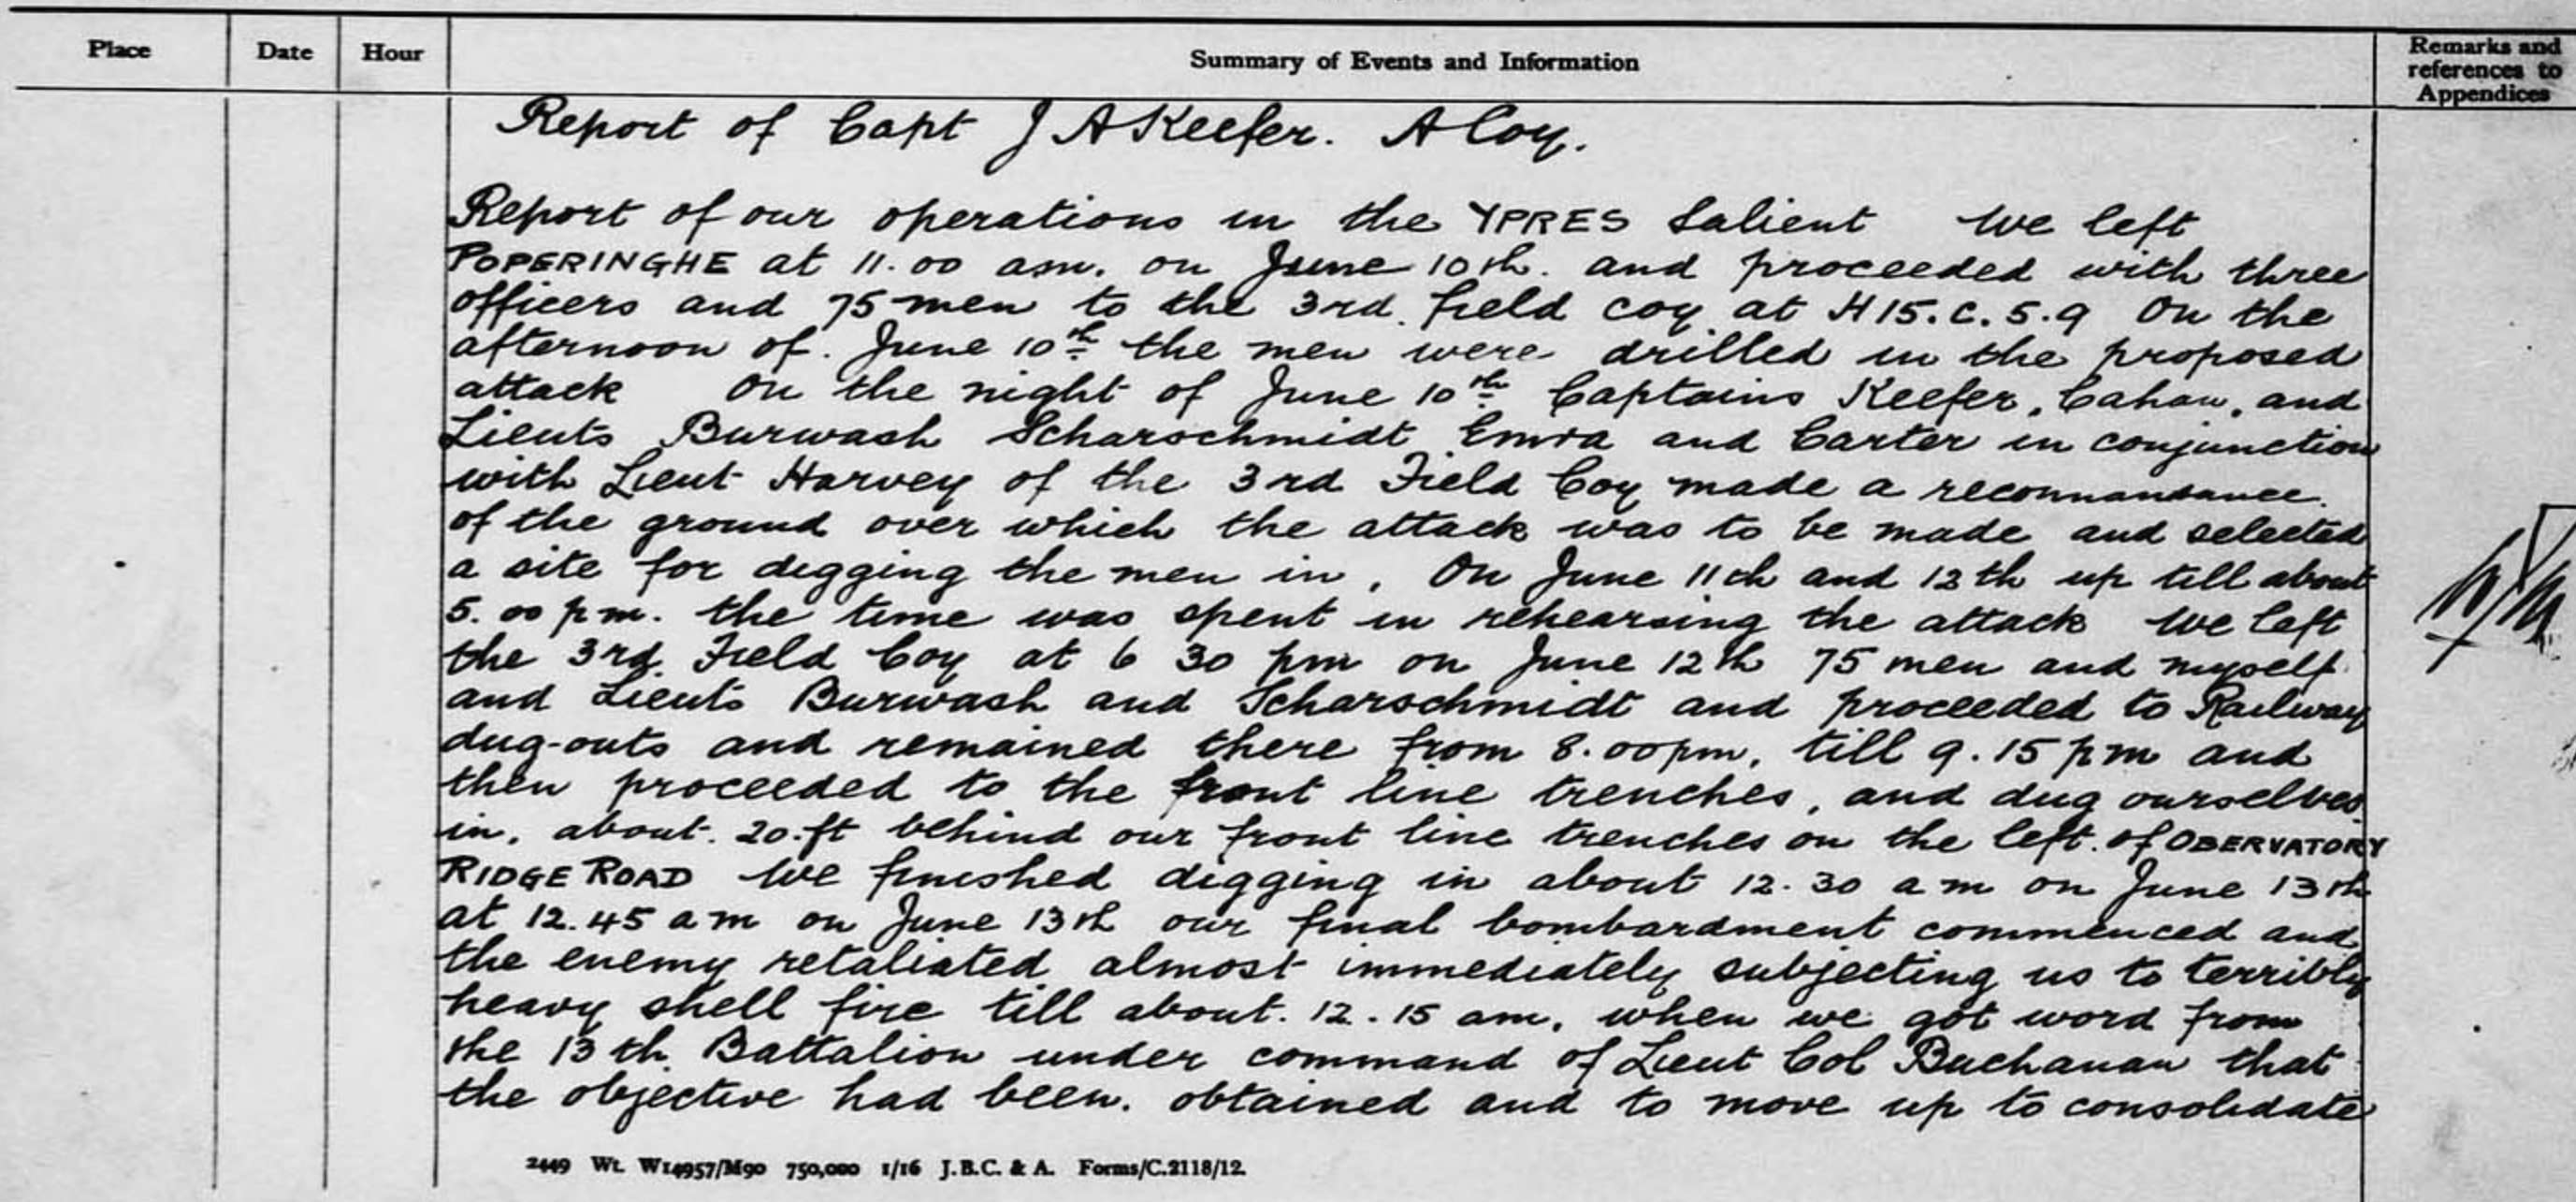 Place Date Hour Summary of Events and Information Remarks and references to Appendices
Report of Capt J A Keefer. A Coy.
Report of our operations in the YPRES Salient We left
POPERINGHE at 11.00 am. on June 10th. and proceeded with three
officers and 75 men to the 3rd. field coy at H15.c.5.9 On the
afternoon of. June 10th the men were drilled in the proposed
attack On the night of June 10th Captains Keefer, Cahan, and
Lieuts Burwash Scharschmidt Emra and Carter in conjunction
with Lieut Harvey of the 3rd Field Coy made a reconnansance.
of the ground over which the attack was to be made and selected
a site for digging the men in, On June 11th and 12th up till about
5.00 pm. the time was spent in rehearsing the attack We left
the 3rd. Field Coy at 6 30 pm on June 12th 75 men and myself
and Lieuts Burwash and Scharschmidt and proceeded to Railway
dug-outs and remained there from 8.00pm, till 9.15 pm and
then proceeded to the front line trenches, and dug ourselves
in, about. 20.ft behind our front line trenches on the left. of OBERVATORY
RIDGE ROAD We finished digging in about 12.30 am on June 13th
at 12.45 am on June 13th our final bombardment commenced and
the enemy retaliated almost immediately subjecting us to terribly
heavy shell fire till about. 12.15 am, when we got word from
the 13th. Battalion under command of Lieut Col Buchanan that
the objective had been. obtained and to move up to consolidate
2449 Wt. W14957/M90 750,000 1/16 J.B.C. & A. Forms/C.2118/12.